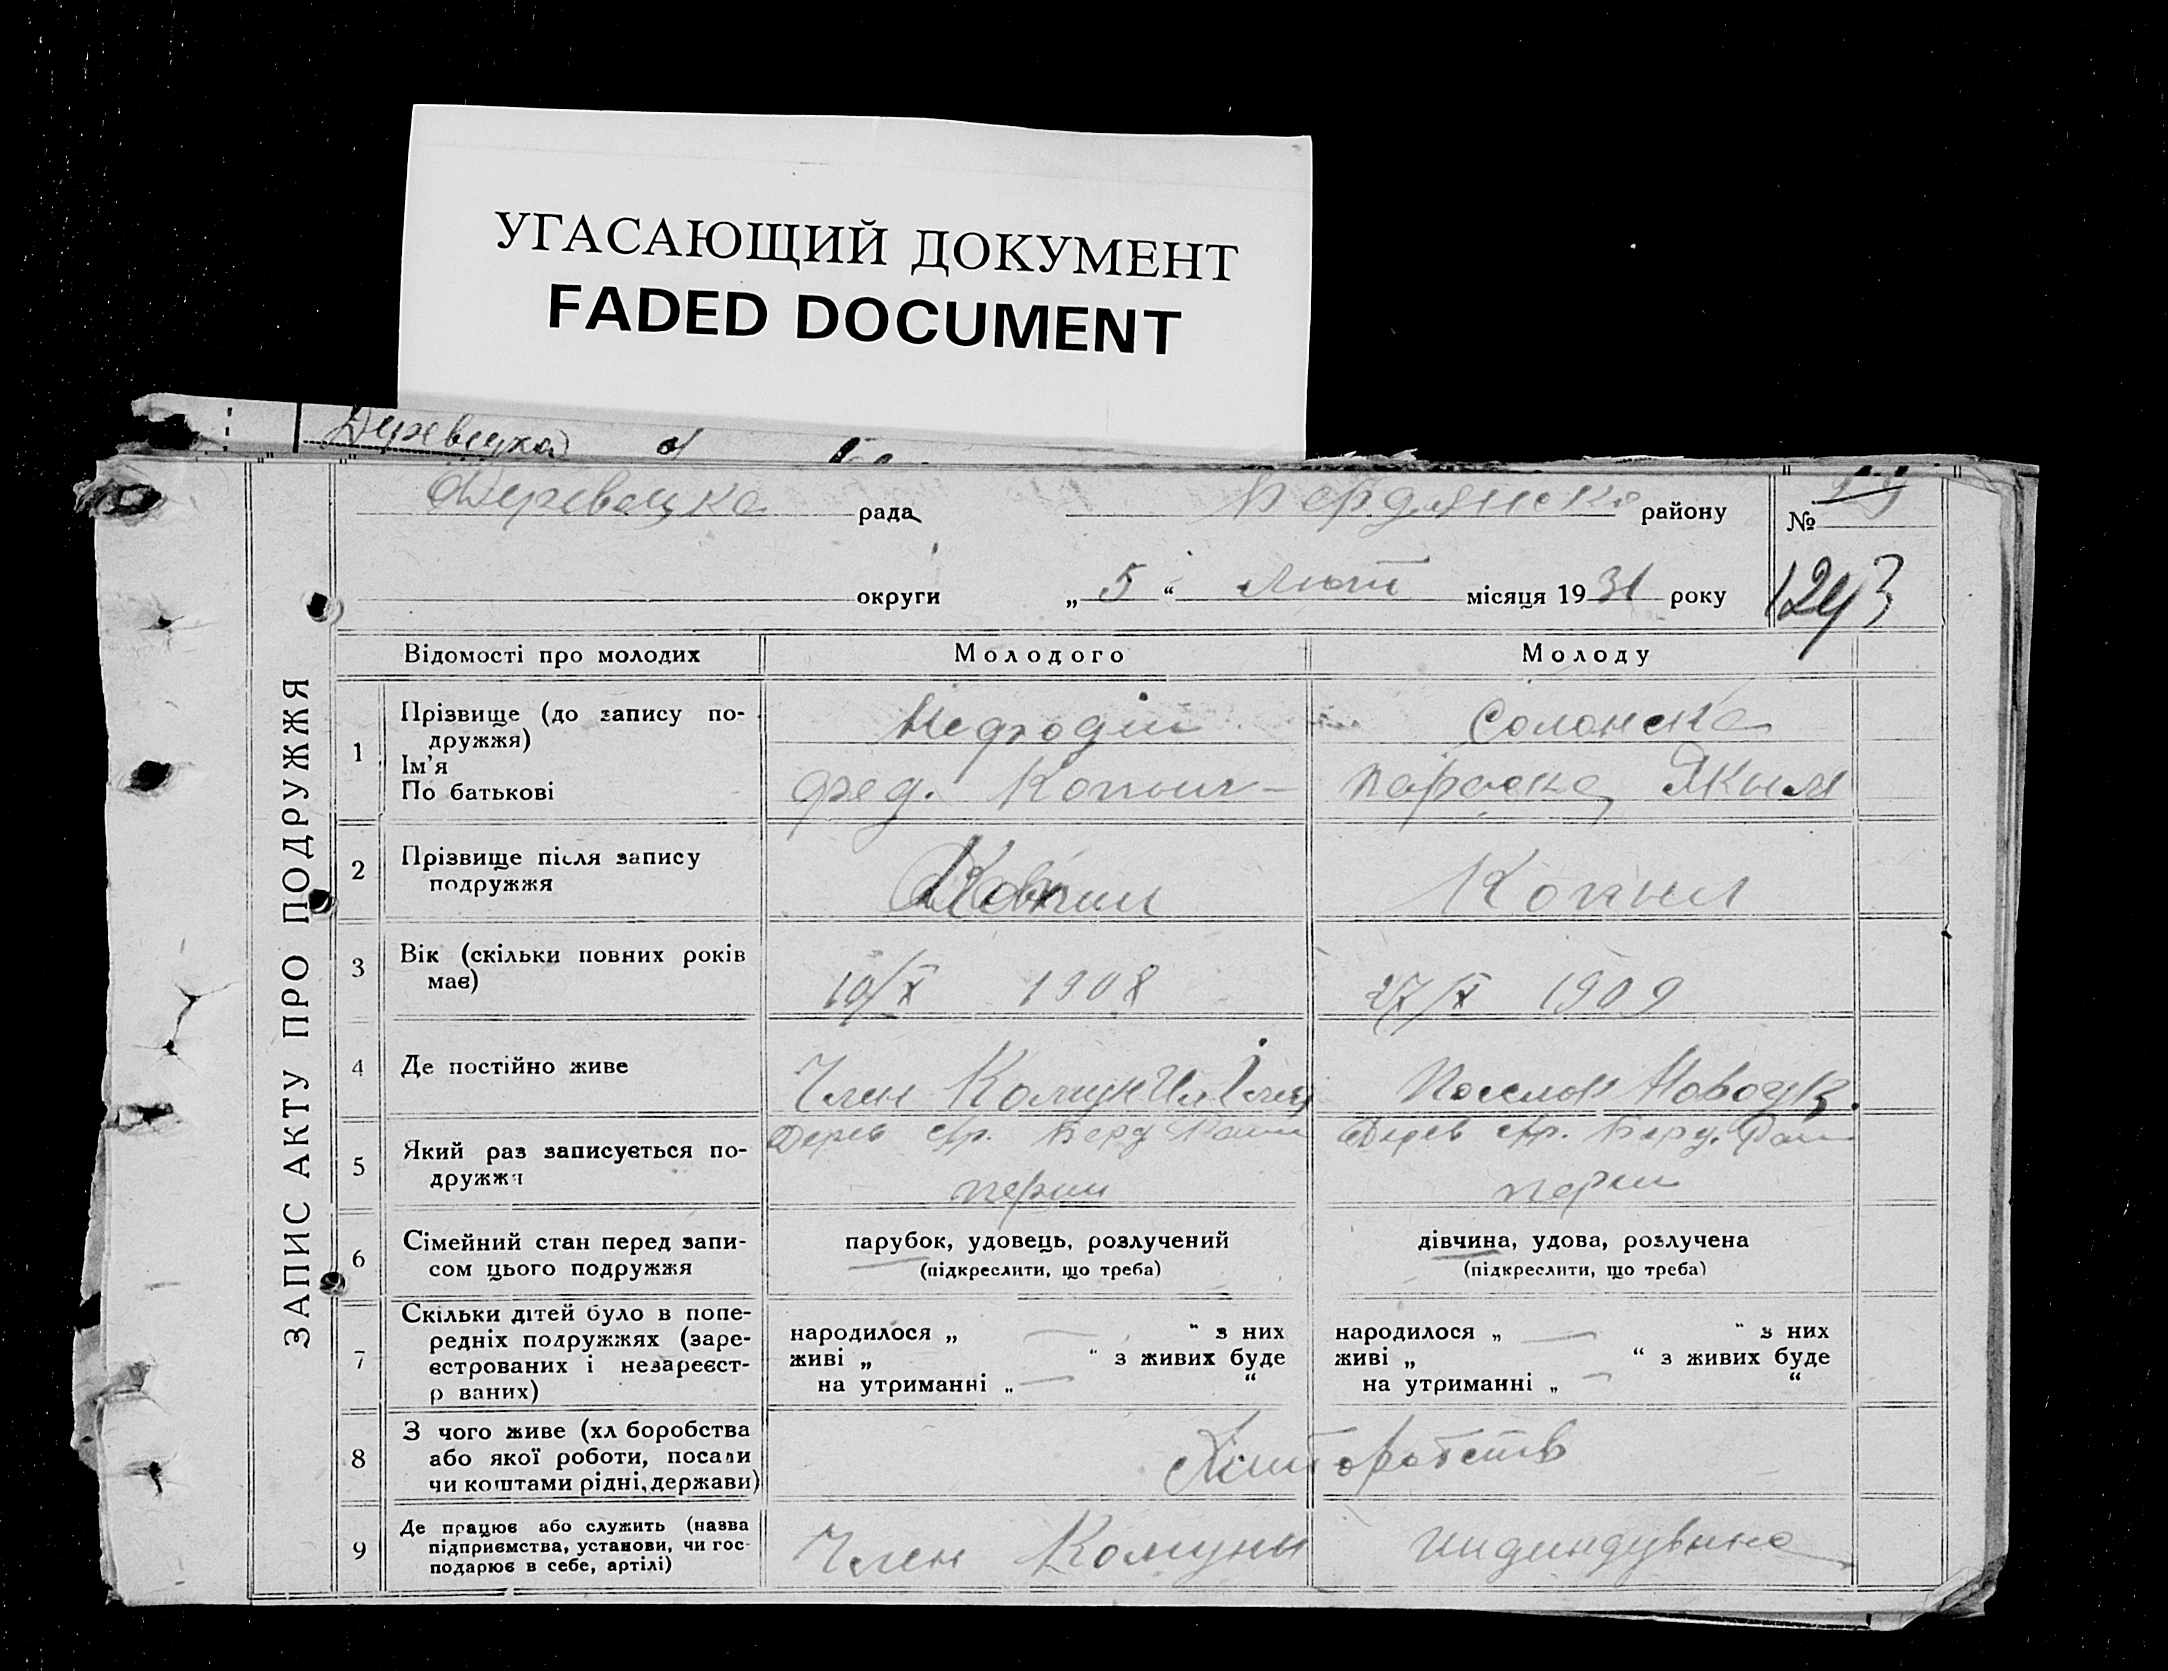 УГАСАЮЩИЙ ДОКУМЕНТ
FADED DOCUMENT
Деревецка рада Бердянско району №
округи „ 5 “ Лют місяця 1931 року
1293
ЗАПИС АКТУ ПРО ПОДРУЖЖЯ
Відомості про молодих Молодого Молоду
1 Прізвище (до запису по-
дружжя)
Ім’я
По батькові
Мефодій
фед. Копил
Солонска
Параска Якым
2 Прізвище після запису
подружжя
Копил Копыл
3 Вік (скільки повних років
має)
10/X 1908 27/X 1909
4 Де постійно живе
Член Комун Илліча Поселок
Дерев с/р. Берд Раион Дерев с/р. Берд. Раион
5 Який раз записується по-
дружжя
перш перш
6 Сімейний стан перед запи-
сом цього подружжя
парубок, удовець, розлучений
(підкреслити, що треба)
дівчина, удова, розлучена
(підкреслити, що треба)
7 Скільки дітей було в попе-
редніх подружжях (заре-
єстрованих і незареєст-
р ваних)
народилося „ — “ з них
живі „ “ з живих буде
на утриманні „ — “
народилося „ — “ з них
живі „ “ з живих буде
на утриманні „ — “
8 З чого живе (хл боробства
або якої роботи, посади
чи коштами рідні, держави)
9 Де працює або служить (назва
підприємства, установи, чи гос-
подарює в себе, артілі)
Член Комуны